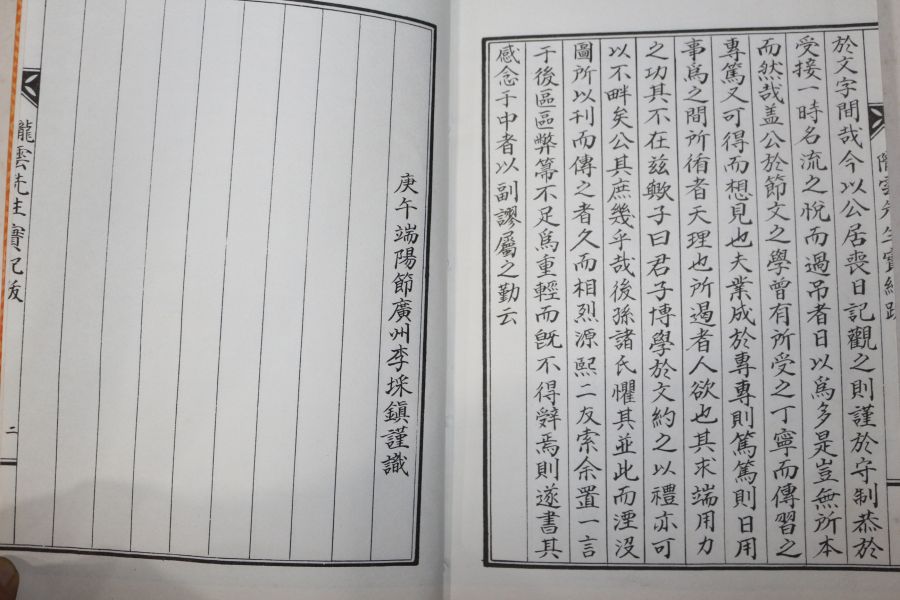 於文字間哉今以公居喪日記觀之則謹於守制恭於
受接一時名流之悅而過吊者日以爲多是豈無所本
而然哉盖公於節文之學曾有所受之丁寧而傳習之
專篤又可得而想見也夫業成於專專則篤篤則日用
事爲之間所循者天理也所遏者人欲也其求端用力
之功其不在玆歟子曰君子博學於文約之以禮亦可
以不畔矣公其庶幾乎哉後孫諸氏懼其並此而湮沒
圖所以刊而傳之者久而相烈源熙二友索余置一言
于後區區弊箒不足爲重輕而旣不得辤焉則遂書其
感念于中者以副謬屬之勤云
庚午端陽節廣州李埰鎭謹識
龍雲先生實紀跋
二